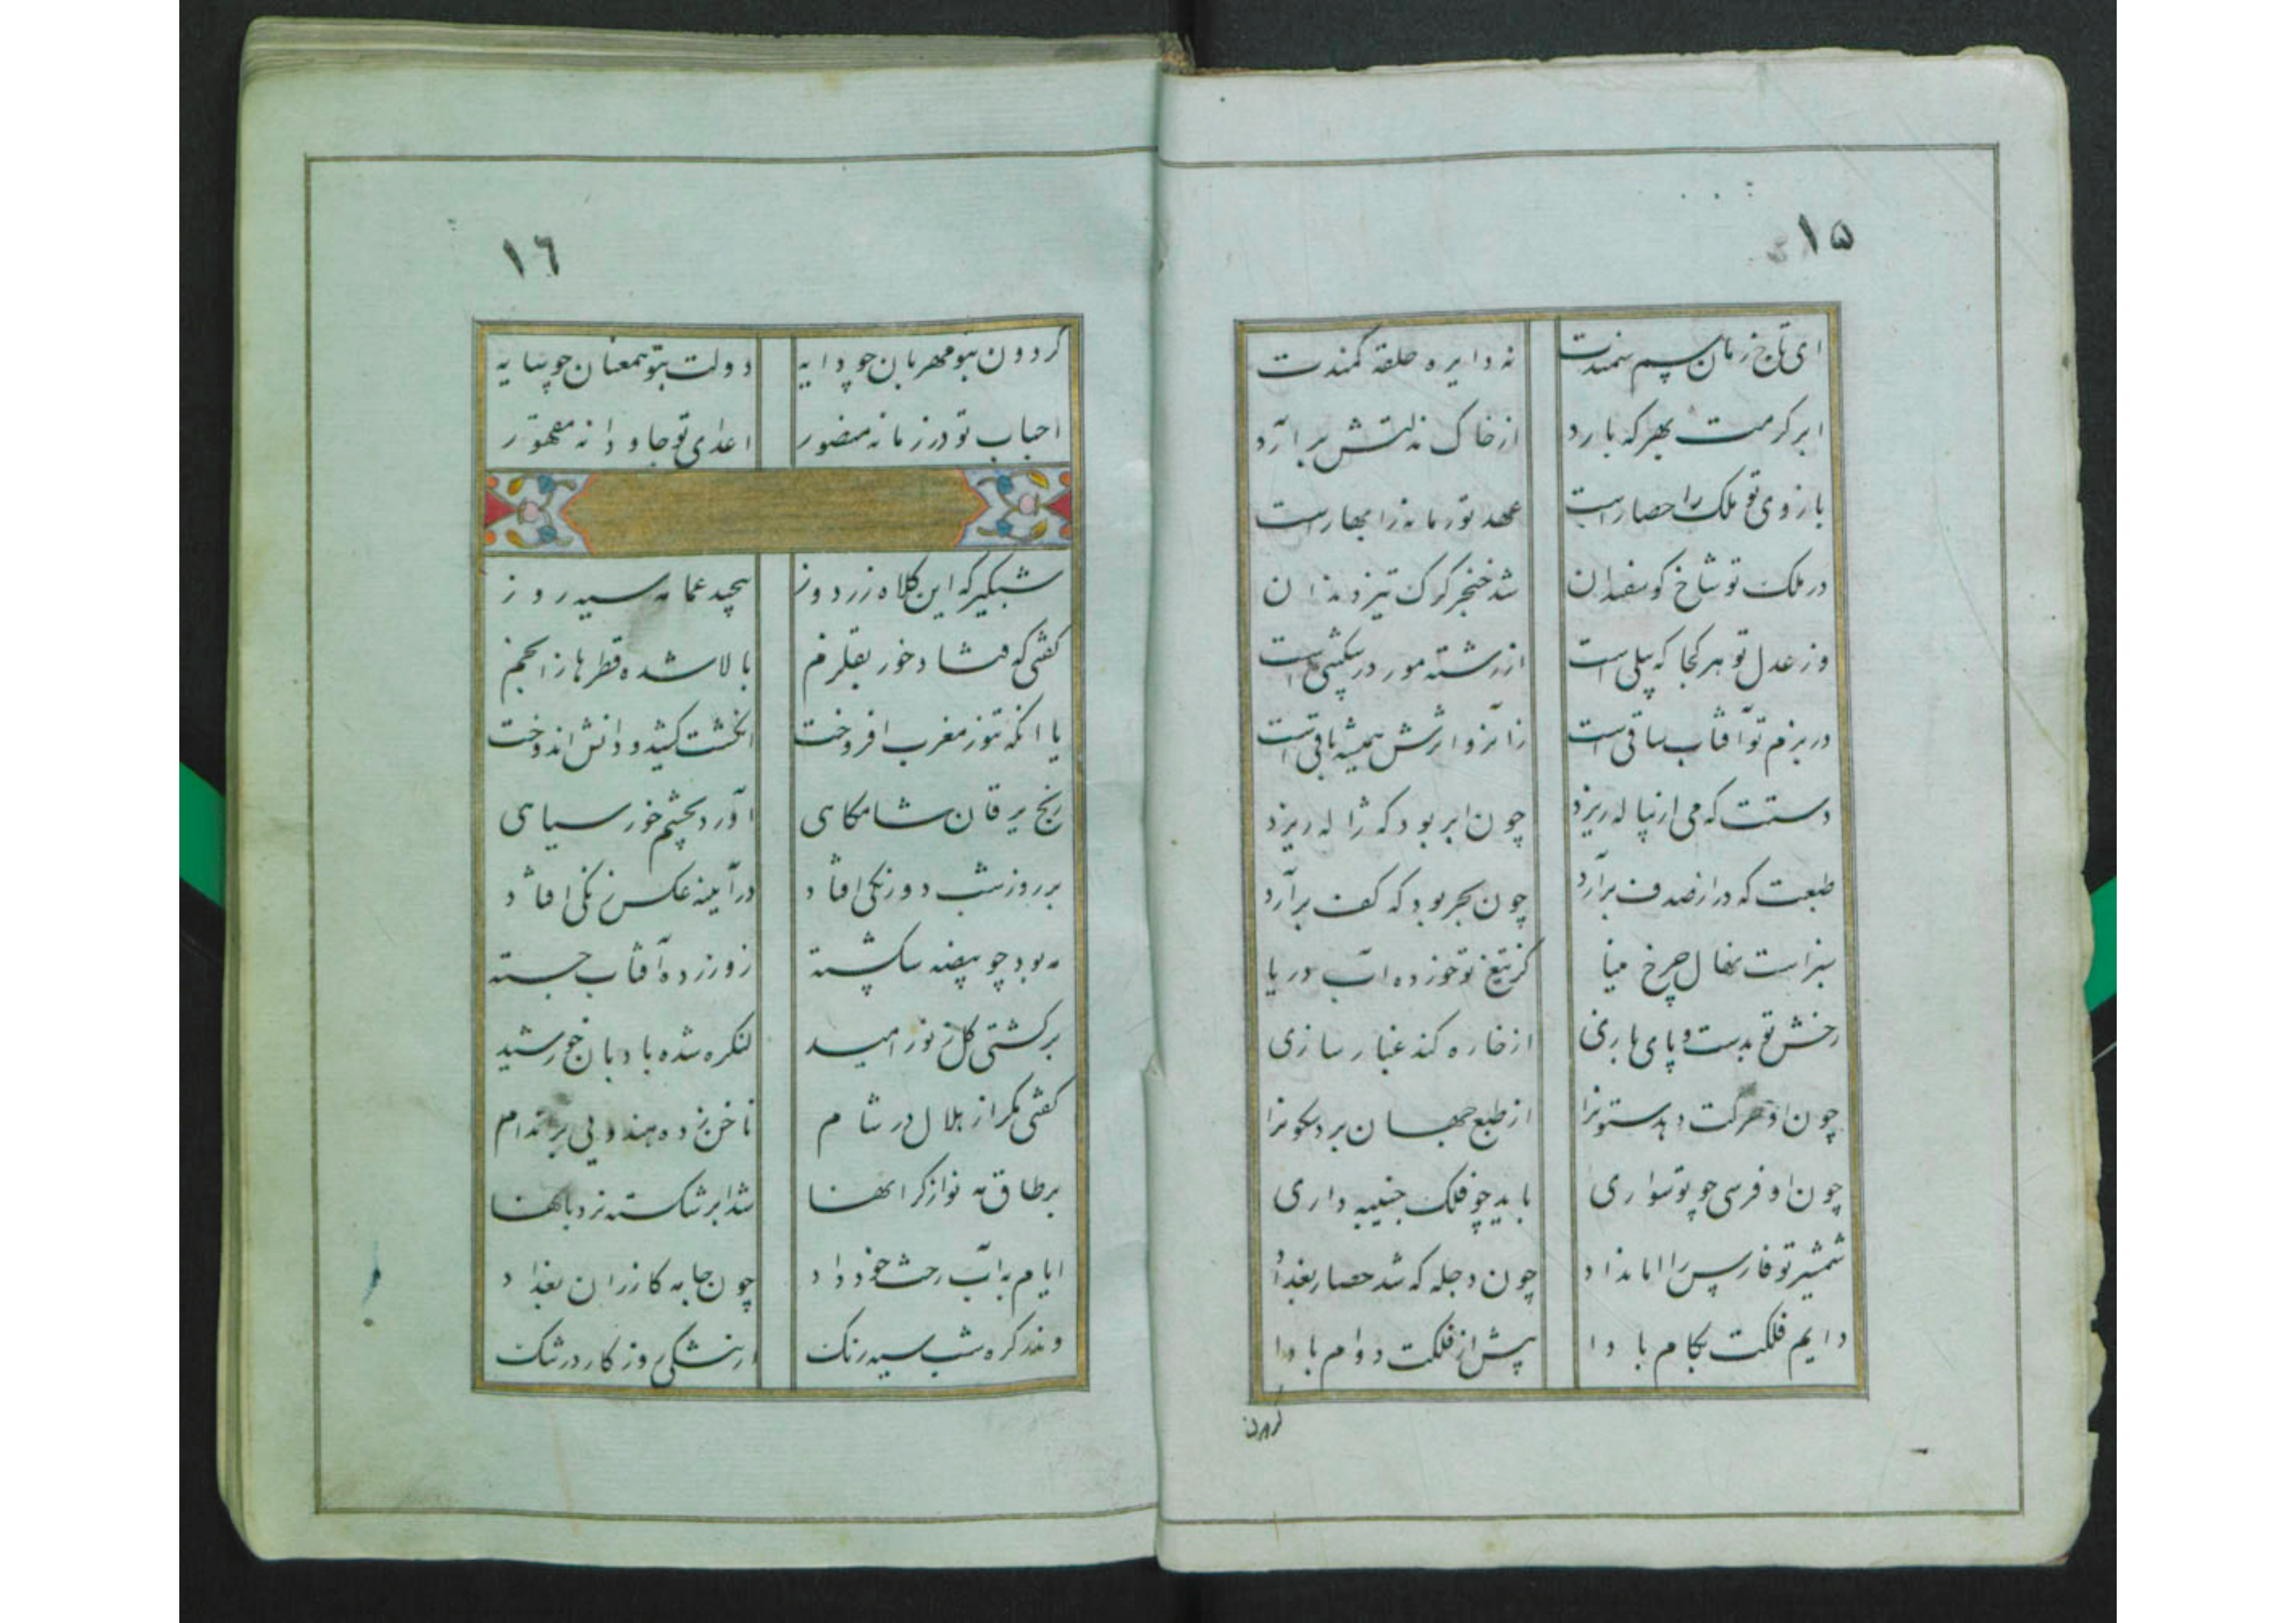 ۱۵
ای تاج زمان سم سمندت نه دایره حلقه کمندت
ابر کرمت بهر که بارد از خاک مذلتش برآرد
بازوی تو ملک را حصار است عهد تو زمانه را بهار است
در ملک تو شاخ کوسفندان شد خنجر کرک تیز دندان
وز عدل تو هر کجا که پیلی است از رشته مور در
در بزم تو آفتاب ساقی است زانرو اثرش همیشه باقی است
دستت که می از پیاله ریزد چون ابر بود که ژاله ریزد
طبعت که در از صدف برآرد چون بحر بود که کف برآرد
سبز است نهال چرخ مینا کز تیغ تو خورده آب دریا
رخش تو بدست و پای بازی از خاره کند غبار سازی
چون او حرکت دهد ستونرا از طبع جهان برد سکونرا
چون او فرسی چو تو سواری باید چو فلک جنیبه داری
شمشیر تو فارس را امان داد چون دجله که شد حصار بغداد
دایم فلکت بکام بادا پیش از فلکت دوام بادا
کردون
۱٦
کردون بتو مهربان چو دایه دولت بتو همعنان چو سایه
احباب تو در زمانه منصور اعدای تو جاودانه مقهور
شبکیر که این کلاه زردوز پیچید عمامه سیه روز
کفتی که فتاد خور بقلزم بالا شده قطرها ز انجم
یا آنکه تنور مغرب افروخت انکشت کشید و دانش اندوخت
رنج یرقان شامکاهی آورد بچشم خور سیاهی
بر روز شب دو رنکی افتاد در آینه عکس زنکی افتاد
مه بود چو بیضه شکسته زو زرده آفتاب جسته
بر کشتی کل ز نور امید لنکره شده بادبان خورشید
کفتی مکر از هلال در شام ناخن زده هندویی بر اندام
بر طاق مه نو از کرانها شد ابر شکسته نردبانها
ایام به آب رخت خود داد چون جامه کازران بغداد
وندر کره شب سیه رنک از تنکی روزکار در تنک